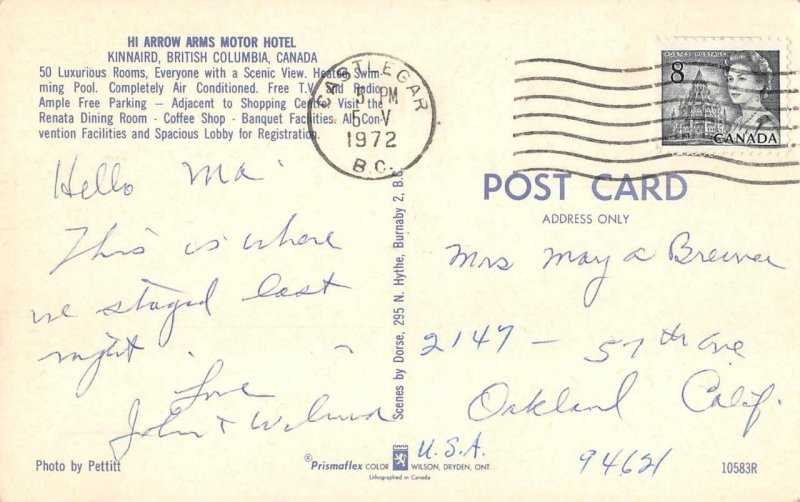 HI ARROW ARMS MOTOR HOTEL
KINNAIRD, BRITISH COLUMBIA, CANADA
50 Luxurious Rooms, Everyone with a Scenic View. Heated Swim-
ming Pool. Completely Air Conditioned. Free T.V. and Radio.
Ample Free Parking — Adjacent to Shopping Centre. Visit the
Renata Dining Room - Coffee Shop - Banquet Facilities. All Con-
vention Facilities and Spacious Lobby for Registration.
Hello Ma
This is where
we stayed last
night.
Love
John &
Photo by Pettitt
CASTLEGAR
5 PM
5 V
1972
B.C.
Scenes by Dorse, 295 N. Hythe, Burnaby 2, B.C.
POSTES POSTAGE
8
CANADA
POST CARD
ADDRESS ONLY
Mrs May a Brewer
2147 — 57th Ave
Oakland Calif.
U.S.A. 94621
®Prismaflex COLOR WILSON, DRYDEN, ONT.
Lithographed in Canada
10583R